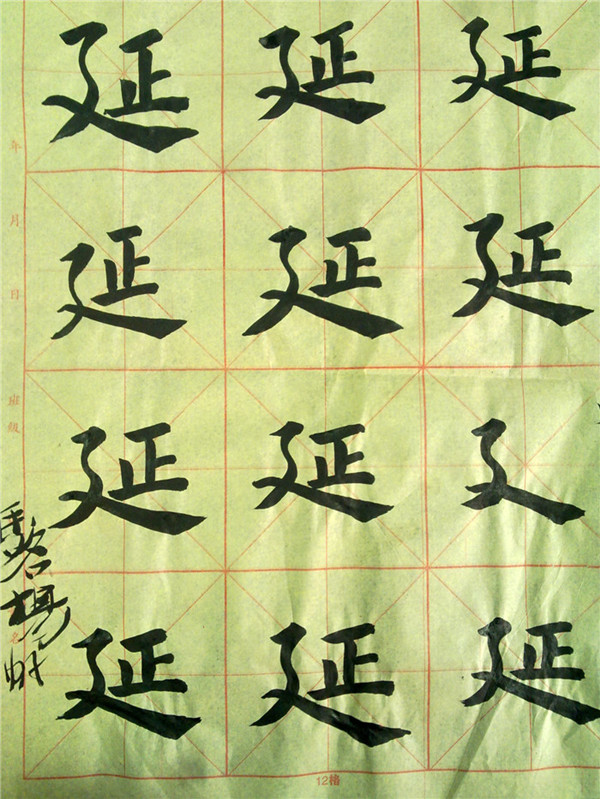 延 延 延
延 延 延
延 延 廴
延 延 延
年 月 日 班級 名
12格